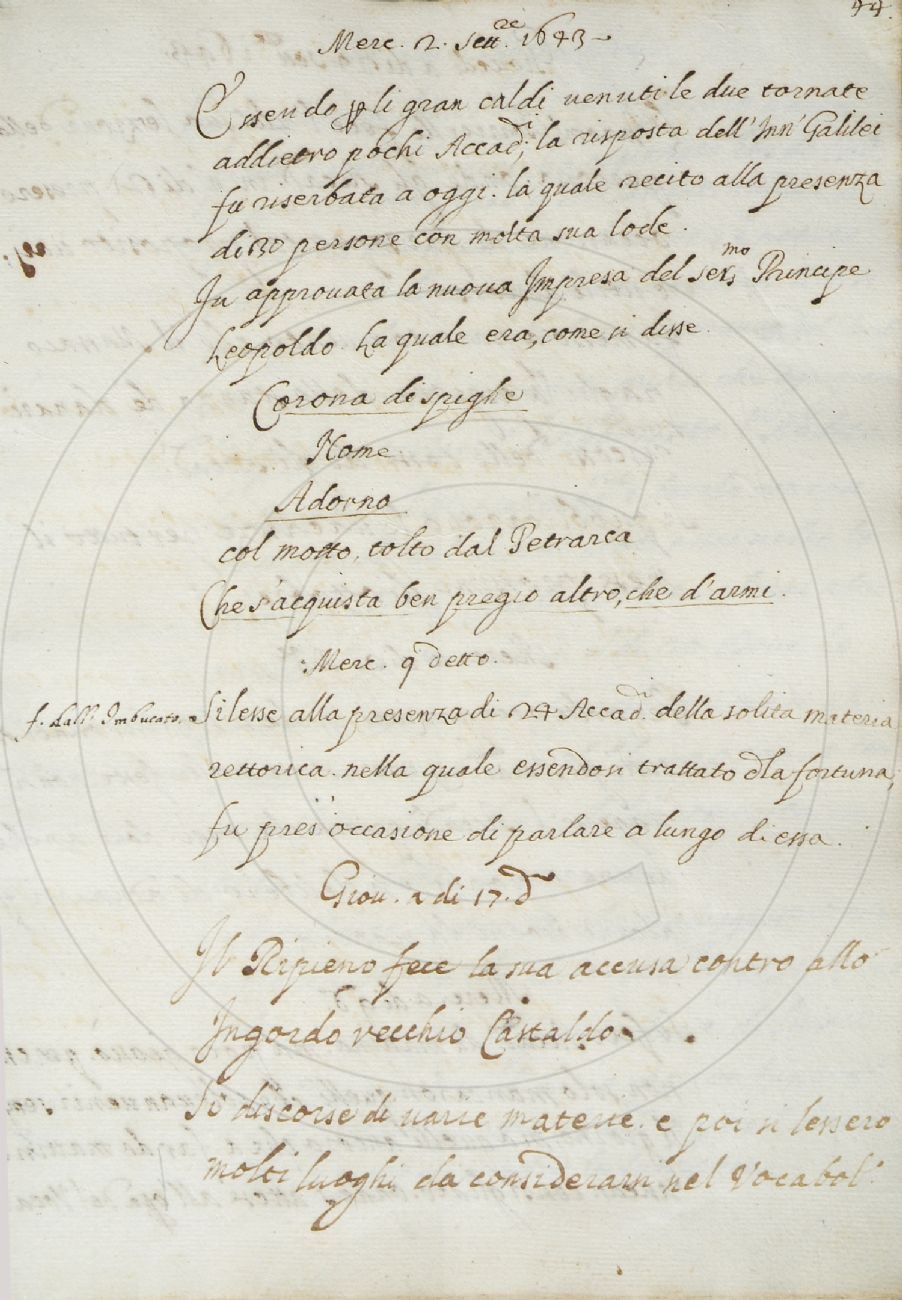 44.
Merc. 2. Sett.re 1643
Essendo p li gran caldi venuti le due tornate
addietro pochi Accad.i, la risposta dell' Inn' Galilei
fu riserbata a oggi. la quale recito alla presenza
di 30 persone con molta sua lode.
Fu approvata la nuova Impresa del Ser.mo Principe
Leopoldo. La quale era, come si disse.
Corona di spighe
Nome
Adorno
col motto, tolto dal Petrarca
Che s'acquista ben pregio altro, che d'armi.
Merc. 9 detto.
f. dall' Imbucato.
Si lesse alla presenza di 24 Accad.i della solita materia
rettorica. nella quale essendosi trattato dla fortuna,
fu pres' occasione di parlare a lungo di essa.
Giov. a di 17. d
Il Ripieno fece la sua accusa contro allo
Ingordo vecchio Castaldo.
Si discorse di varie materie. e poi si lessero
molti luoghi da considerarsi nel Vocabol.